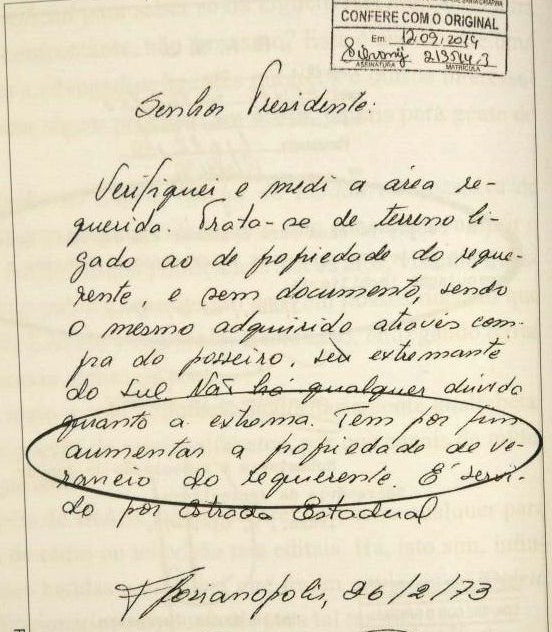 CONFERE COM O ORIGINAL
Em 12,09,2014
ASSINATURA MATRÍCULA
Senhor Presidente:
Verifiquei e medi a área re-
querida. Trata-se de terreno li-
gado ao de propiedade do reque-
rente, e sem documento, sendo
o mesmo adquirido através com-
pra do posseiro, seu extremante
do Sul Não há qualquer dúvida
quanto a extrema. Tem por fim
aumentar a propiedade de ve-
raneio do requerente. É servi-
do por Estrada Estadual
Florianopolis, 26/2/73